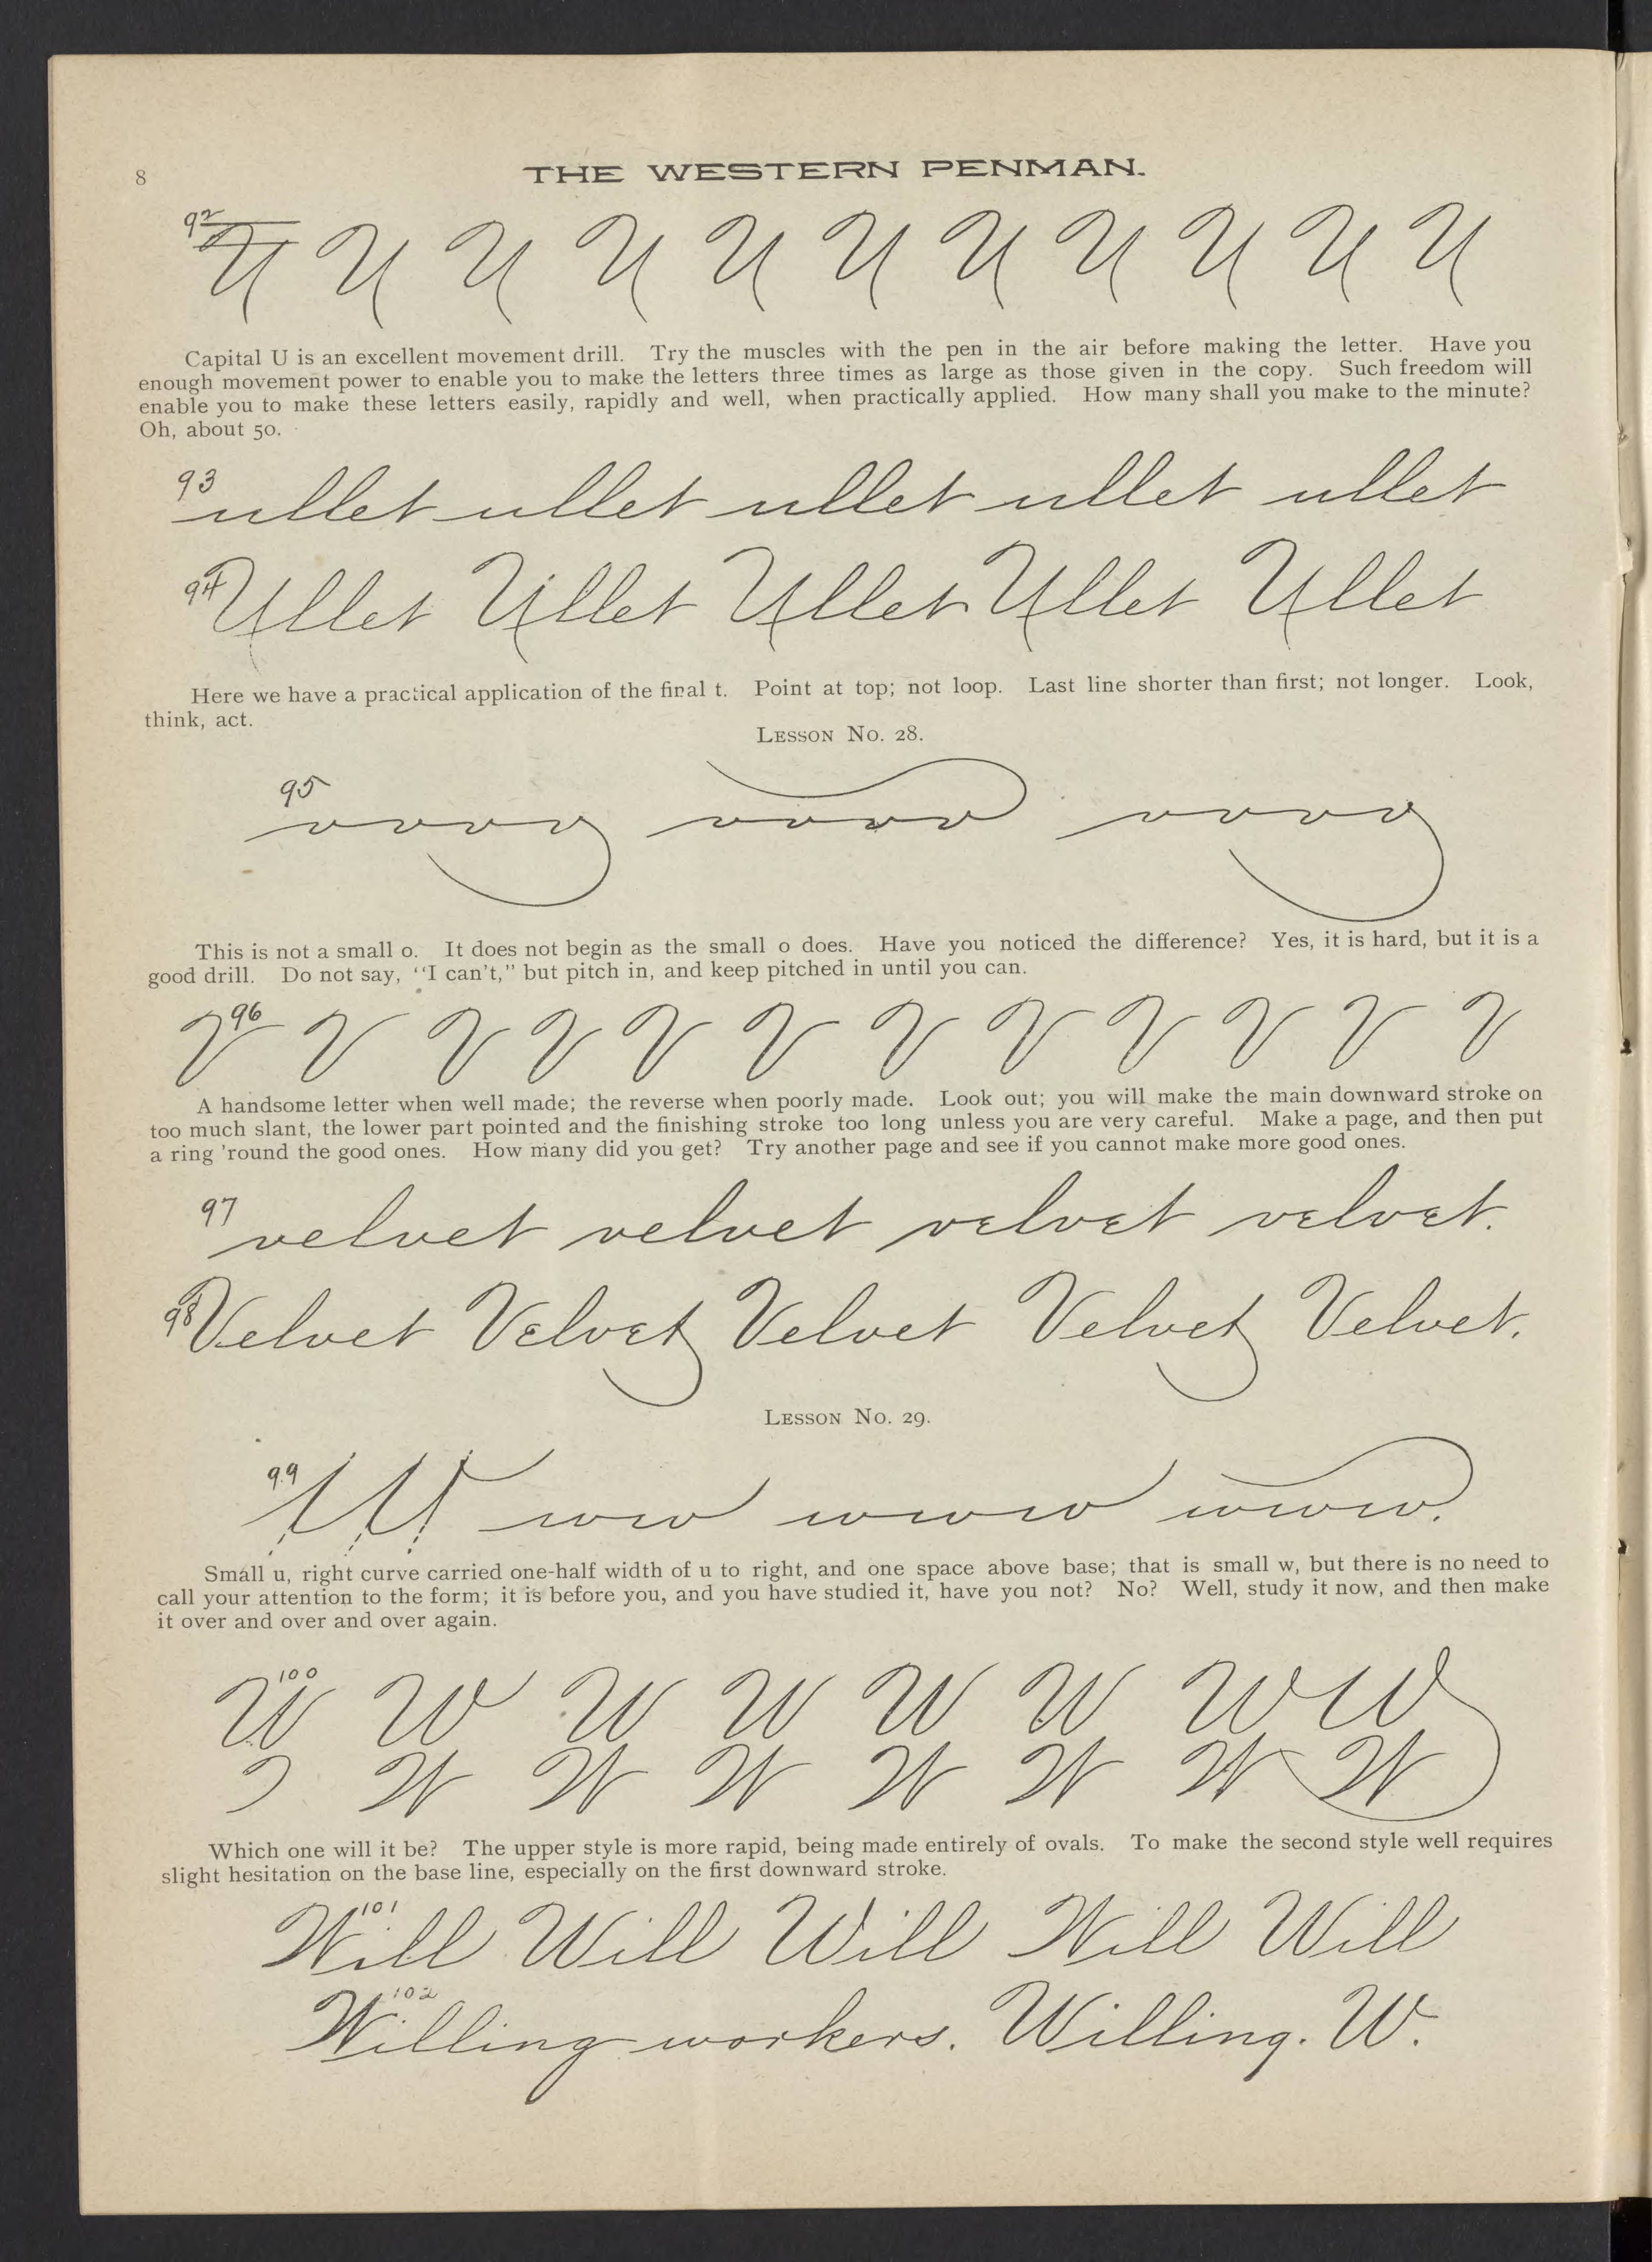 8
THE WESTERN PENMAN.
92
U U U U U U U U U U U
Capital U is an excellent movement drill. Try the muscles with the pen in the air before making the letter. Have you
enough movement power to enable you to make the letters three times as large as those given in the copy. Such freedom will
enable you to make these letters easily, rapidly and well, when practically applied. How many shall you make to the minute?
Oh, about 50.
93 ullet ullet ullet ullet ullet
94 Ullet Ullet Ullet Ullet Ullet
Here we have a practical application of the final t. Point at top; not loop. Last line shorter than first; not longer. Look,
think, act.
LESSON No. 28.
95
vvvv vvvv vvvv
This is not a small o. It does not begin as the small o does. Have you noticed the difference? Yes, it is hard, but it is a
good drill. Do not say, "I can't," but pitch in, and keep pitched in until you can.
96
V V V V V V V V V V V V
A handsome letter when well made; the reverse when poorly made. Look out; you will make the main downward stroke on
too much slant, the lower part pointed and the finishing stroke too long unless you are very careful. Make a page, and then put
a ring 'round the good ones. How many did you get? Try another page and see if you cannot make more good ones.
97 velvet velvet velvet velvet.
98 Velvet Velvet Velvet Velvet Velvet.
LESSON No. 29.
99 w ww www www.
Small u, right curve carried one-half width of u to right, and one space above base; that is small w, but there is no need to
call your attention to the form; it is before you, and you have studied it, have you not? No? Well, study it now, and then make
it over and over and over again.
100
W W W W W W W W
W W W W W W W
Which one will it be? The upper style is more rapid, being made entirely of ovals. To make the second style well requires
slight hesitation on the base line, especially on the first downward stroke.
101
Will Will Will Will Will
102
Willing workers. Willing. W.